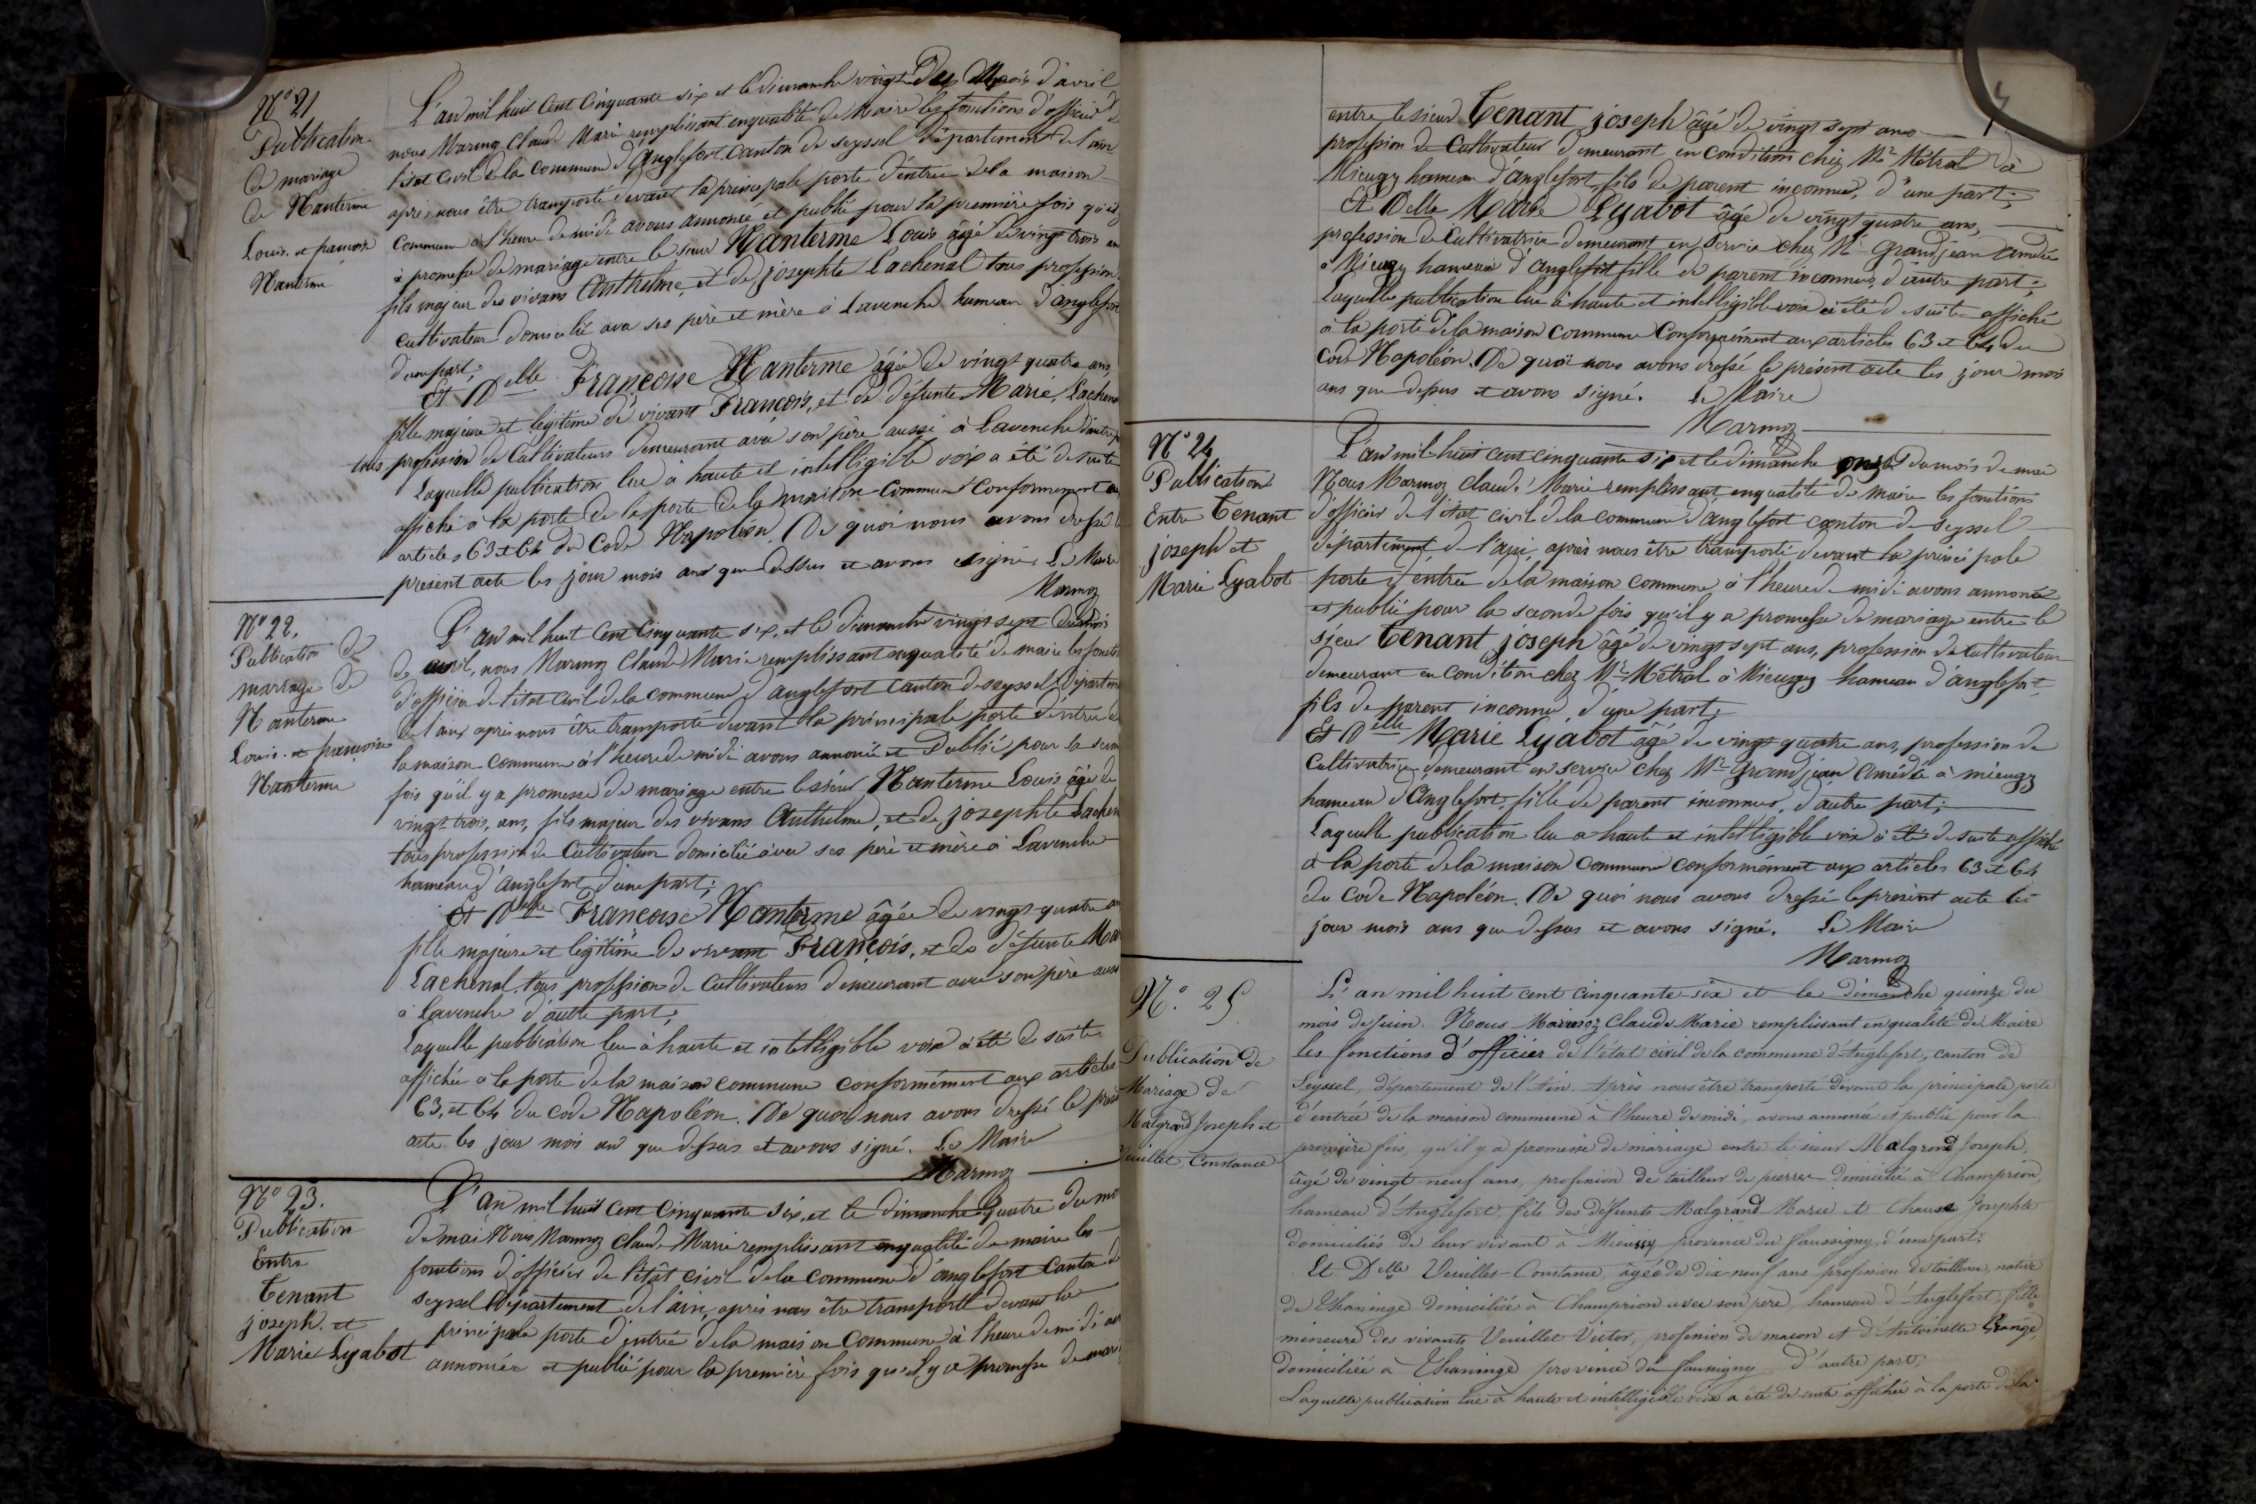 N° 21
Publication
de mariage
de Nanterme
Louis. et françoise
Nanterme
L'an mil huit Cent Cinquante six et le dimanche vingt Du Mois d'avril
nous Marmoz Claude Marie remplissant en qualité de Maire les fonctions d'officier de
l'état Civil de la Commune d'anglefort Canton de seyssel département de l'ain
après nous être transporté devant la principale porte d'entrée de la maison
Commune à l'heure de midi avons annoncé et publié pour la première fois qu'il
à promesse de mariage entre le sieur Nanterme Louis âgé de vingt trois ans
fils majeur des vivans Anthelme, et de josephte Lachenal tous profession
cultivateur domicilié avec ses père et mère à Lavenche hameau d'anglefort
d'une part;
Et Delle Françoise Nanterme âgée de vingt quatre ans,
fille majeure et légitime de vivant François, et de défunte Marie, Lachenal
tous profession de Cultivateurs demeurant avec son père aussi à Lavenche d'autre
Laquelle publication lue à haute et intelligible voix a été de suite
affiché à la porte de la porte de la maison Commune Conformement aux
articles 63 et 64 du Code Napoléon. De quoi nous avons dressé le
présent acte les jour mois ans que dessus et avons signé. Le Maire
Marmoz
N° 22.
Publication de
mariage de
Nanterme
Louis. et françoise
Nanterme
L'an mil huit Cent Cinquante six, et le dimanche vingt sept du mois
de avril, nous Marmoz Claude Marie remplissant en qualité de maire les foncti
d'officier de l'état Civil de la commune d'anglefort Canton de seyssel départem
de l'ain après nous être transporté devant la principale porte d'entrée de
la maison commune à l'heure de midi avons annoncé et Publié pour la secon
fois qu'il y a promesse de mariage entre le sieur Nanterme Louis âgé de
vingt trois, ans, fils majeur des vivans Anthelme, et de josephte Lachen
tous profession de Cultivateur domicilié avec ses père et mère à Lavenche
hameau d'anglefort d'une part;
Et Delle Françoise Nanterme âgée de vingt quatre an
fille majeure et légitime de vivant François, et de défunte Mar
Lachenal, tous profession de Cultivateurs demeurant avec son père aussi
à Lavenche d'autre part;
Laquelle publication lue à haute et intelligible voix a été de suite
affichée à la porte de la maison commune conformément aux articles
63, et 64 du Code Napoléon. De quoi nous avons dressé le prése
acte les jour mois ans que dessus et avons signé. Le Maire
Marmoz
N° 23.
Publication
Entre
Tenant
joseph. et
Marie Lyabot
L'an mil huit Cent Cinquante six, et le dimanche quatre du mo
de mai Nous Marmoz Claude Marie remplissant en qualité de maire les
fonctions d'officier de l'état Civil de la Commune d'anglefort Canton de
seyssel département de l'ain, après nous être transporté devant la
principale porte d'entrée de la maison Commune à l'heure de midi av
annoncée et publié pour la première fois qu'il y a promesse de mari
entre le sieur Tenant joseph âgé de vingt sept ans
profession de Cultivateur demeurant en condition chez Mr Métral à
Mieugy hameau d'anglefort, fils de parent inconnu, d'une part;
Et Delle Marie Lyabot âgé de vingt quatre ans,
profession de Cultivatrice demeurant en Service chez Mr Grandjean Amédée
à Mieugy hameau d'anglefort fille de parent inconnus, d'autre part;
Laquelle publication lue à haute et intelligible voix a été de suite affiché
à la porte de la maison Commune Conformément aux articles 63 et 64 du
Code Napoléon. De quoi nous avons dressé le présent acte les jour mois
ans que dessus et avons signé. Le Maire
Marmoz
N° 24
Publication
Entre Tenant
joseph et
Marie Lyabot
L'an mil huit cent cinquante six et le dimanche onze du mois de mai
Nous Marmoz Claude Marie remplissant en qualité de maire les fonctions
d'officier de l'état civil de la commune d'anglefort canton de seyssel
département de l'ain, après nous être transporté devant la principale
porte d'entrée de la maison commune à l'heure de midi avons annoncé
et publié pour la seconde fois qu'il y a promesse de mariage entre le
sieur Tenant joseph âgé de vingt sept ans, profession de Cultivateur
demeurant en condition chez Mr Métral à Mieugy hameau d'anglefort
fils de parent inconnu, d'une part;
Et Delle Marie Lyabot âgé de vingt quatre ans, profession de
Cultivatrice demeurant en service chez Mr Grandjean Amédée à mieugy
hameau d'Anglefort, fille de parent inconnus, d'autre part;
Laquelle publication lue à haute et intelligible voix a été de suite affiché
à la porte de la maison Commune conformément aux articles 63 et 64
du Code Napoléon. De quoi nous avons dressé le présent acte les
jour mois ans que dessus et avons signé. Le Maire
Marmoz
N° 25
Publication de
Mariage de
Malgrand Joseph et
Veuillet Constance
L'an mil huit cent cinquante six et le dimanche quinze du
mois de Juin. Nous Marmoz Claude Marie remplissant en qualité de Maire
les fonctions d'officier de l'état civil de la commune d'Anglefort, canton de
Seyssel, département de l'Ain. Après nous être transporté devant la principale porte
d'entrée de la maison commune à l'heure de midi, avons annoncé et publié pour la
première fois, qu'il y a promesse de mariage entre le sieur Malgrand Joseph,
âgé de vingt neuf ans, profession de tailleur de pierres domicilié à Champrion,
hameau d'Anglefort fils des défunts Malgrand Marie et Josephte
domiciliés de leur vivant à Mieussy province du faussigny, d'une part;
Et Delle Veuillet Constance, âgée de dix neuf ans profession de tailleuse, native
de Thaninge domiciliée à Champrion avec son père, hameau d'Anglefort, fille
mineure des vivants Veuillet Victor, profession de maçon et d'Antoinette Grange
domiciliée à Thaninge province du faussigny d'autre part.
Laquelle publication lue à haute et intelligible voix a été de suite affichée à la porte de la